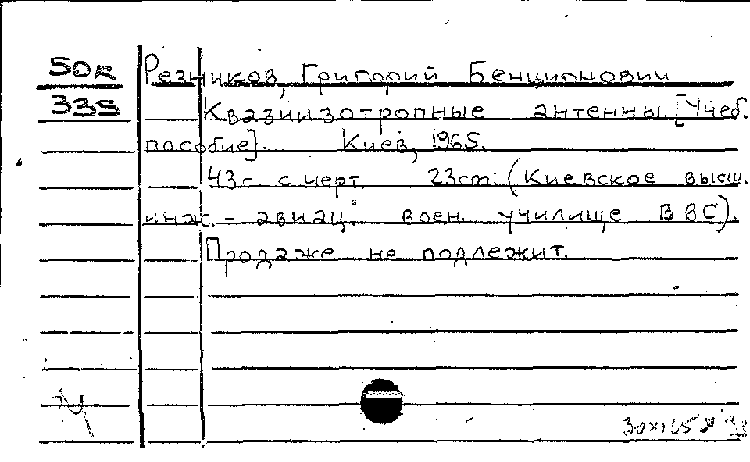 50к Резников, Григорий Бенционович
335 Квазиизотропные антенны. [Учеб.
пособие]. Киев, 1965.
43 с. с черт. 23 см. (Киевское высш.
инж.-авиац. воен. училище ВВС).
Продаже не подлежит.